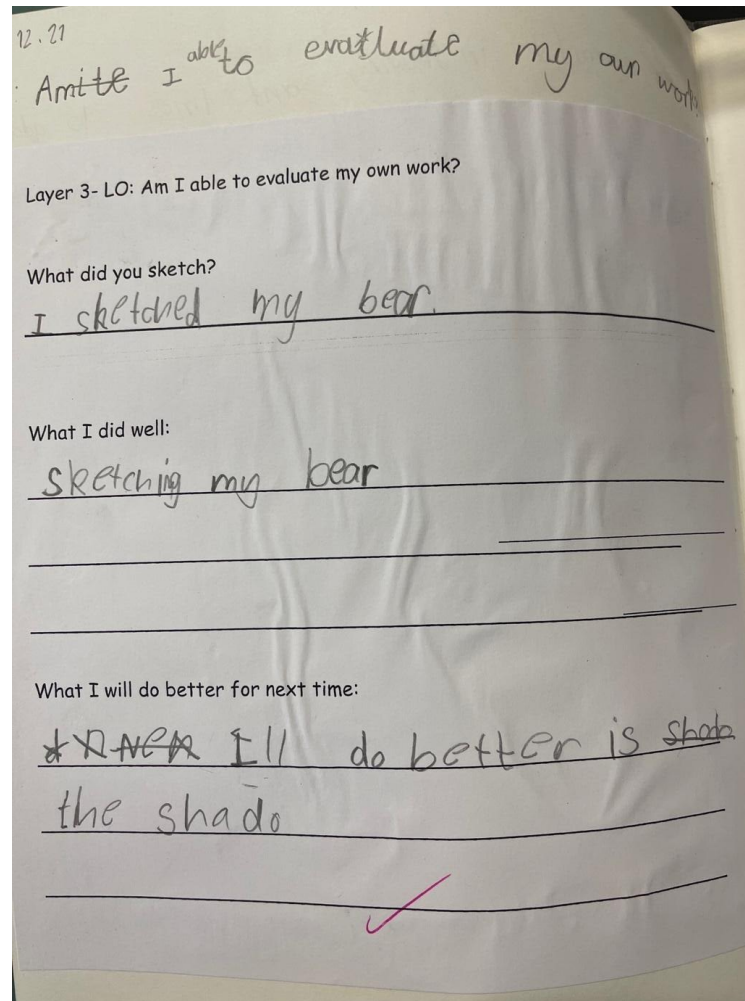 12.21
Amite I able to evatluate my oun work
Layer 3- LO: Am I able to evaluate my own work?
What did you sketch?
I sketched my bear.
What I did well:
sketching my bear
What I will do better for next time:
I'll do better is shado
the shado